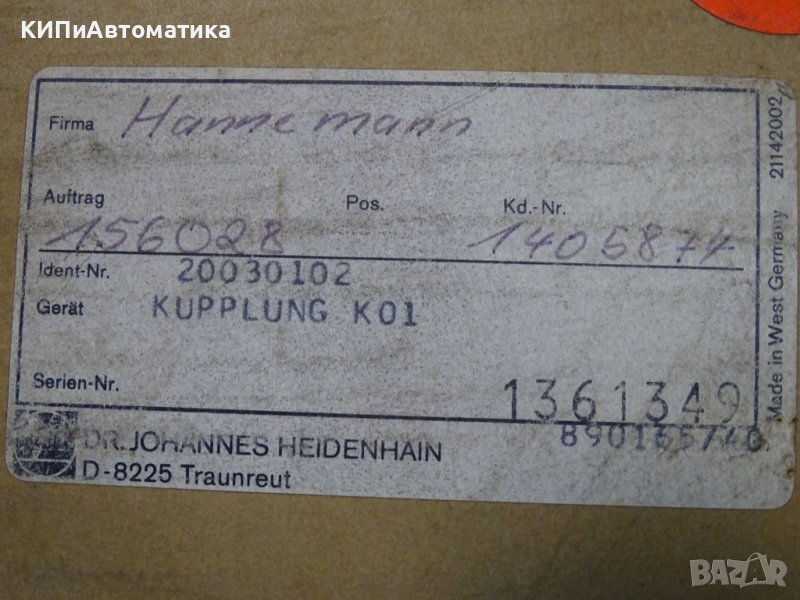 КИПиАвтоматика
Firma Hannemann
Auftrag Pos. Kd.-Nr.
156028 1405874
Ident-Nr. 20030102
Gerät KUPPLUNG K01
Serien-Nr. 1361349
DR. JOHANNES HEIDENHAIN
D-8225 Traunreut
Made in West Germany 21142002
BAZAR